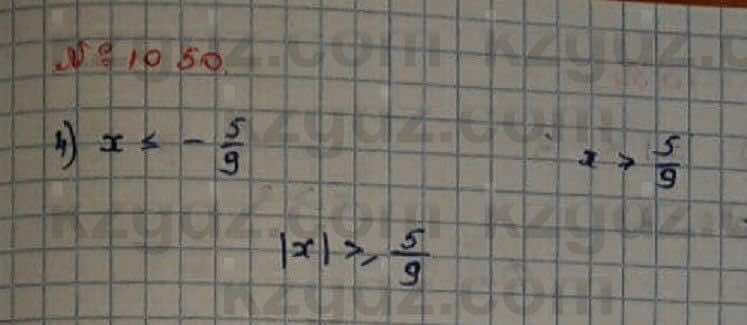 № 1050.
4) x ≤ - 5/9 x > 5/9
|x| ≥ 5/9
kzgdz.com kzgdz.com
kzgdz.com
kzgdz.com kzgdz.com
kzgdz.com